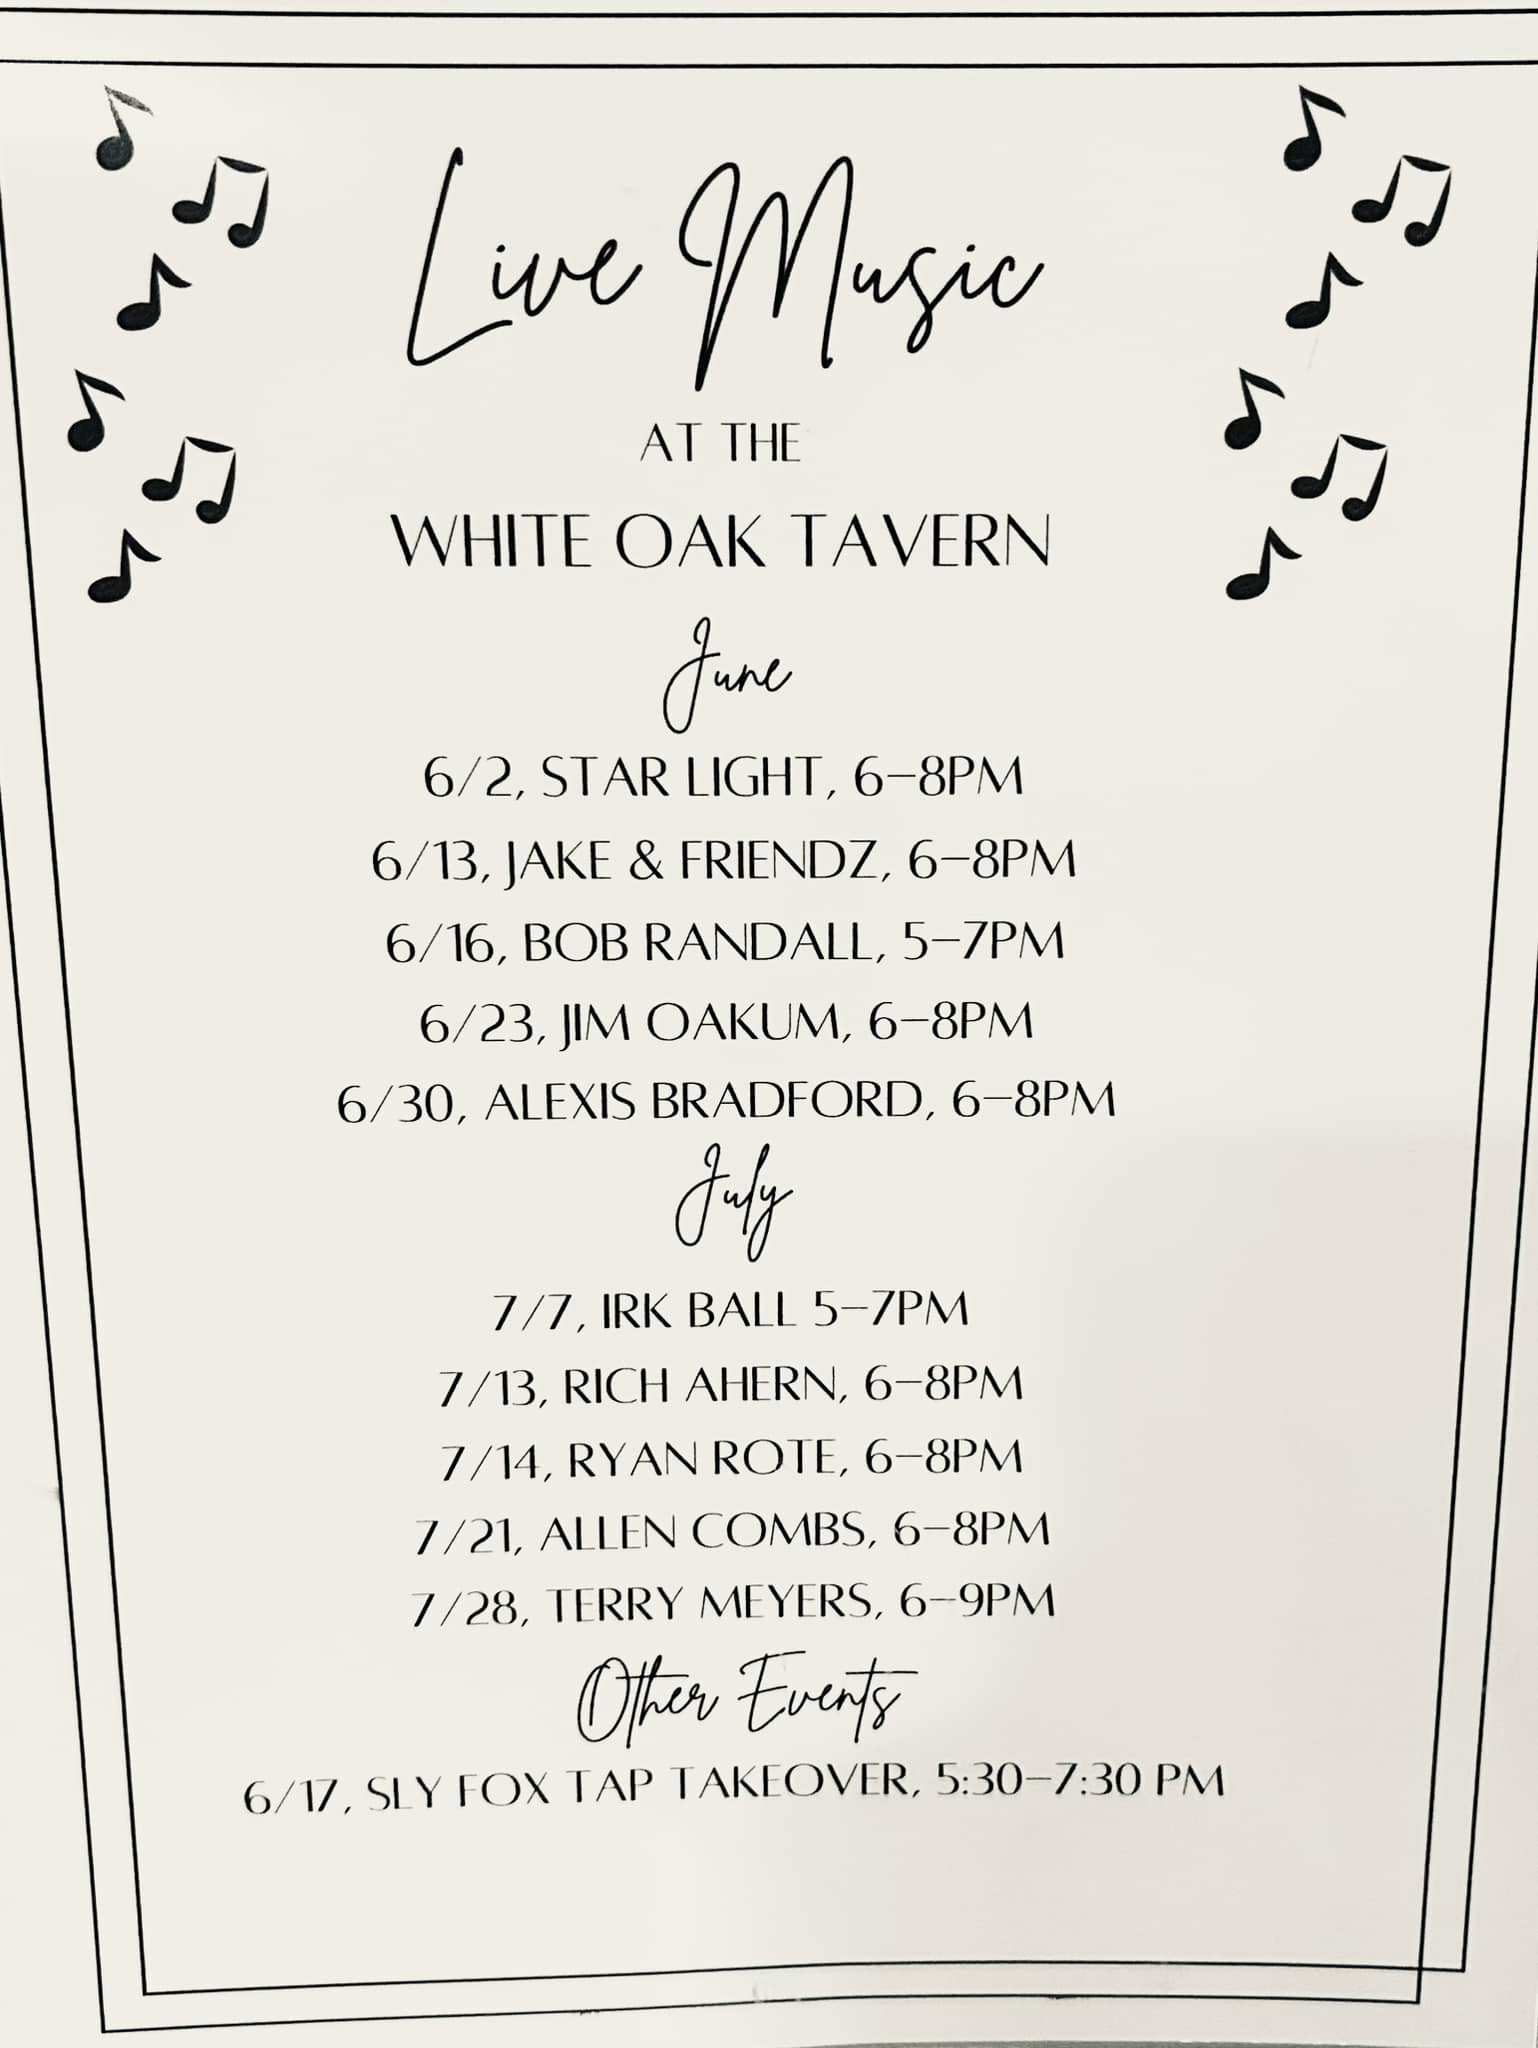 Live Music
AT THE
WHITE OAK TAVERN
June
6/2, STAR LIGHT, 6–8PM
6/13, JAKE & FRIENDZ, 6–8PM
6/16, BOB RANDALL, 5–7PM
6/23, JIM OAKUM, 6–8PM
6/30, ALEXIS BRADFORD, 6–8PM
July
7/7, IRK BALL 5–7PM
7/13, RICH AHERN, 6–8PM
7/14, RYAN ROTE, 6–8PM
7/21, ALLEN COMBS, 6–8PM
7/28, TERRY MEYERS, 6–9PM
Other Events
6/17, SLY FOX TAP TAKEOVER, 5:30–7:30 PM